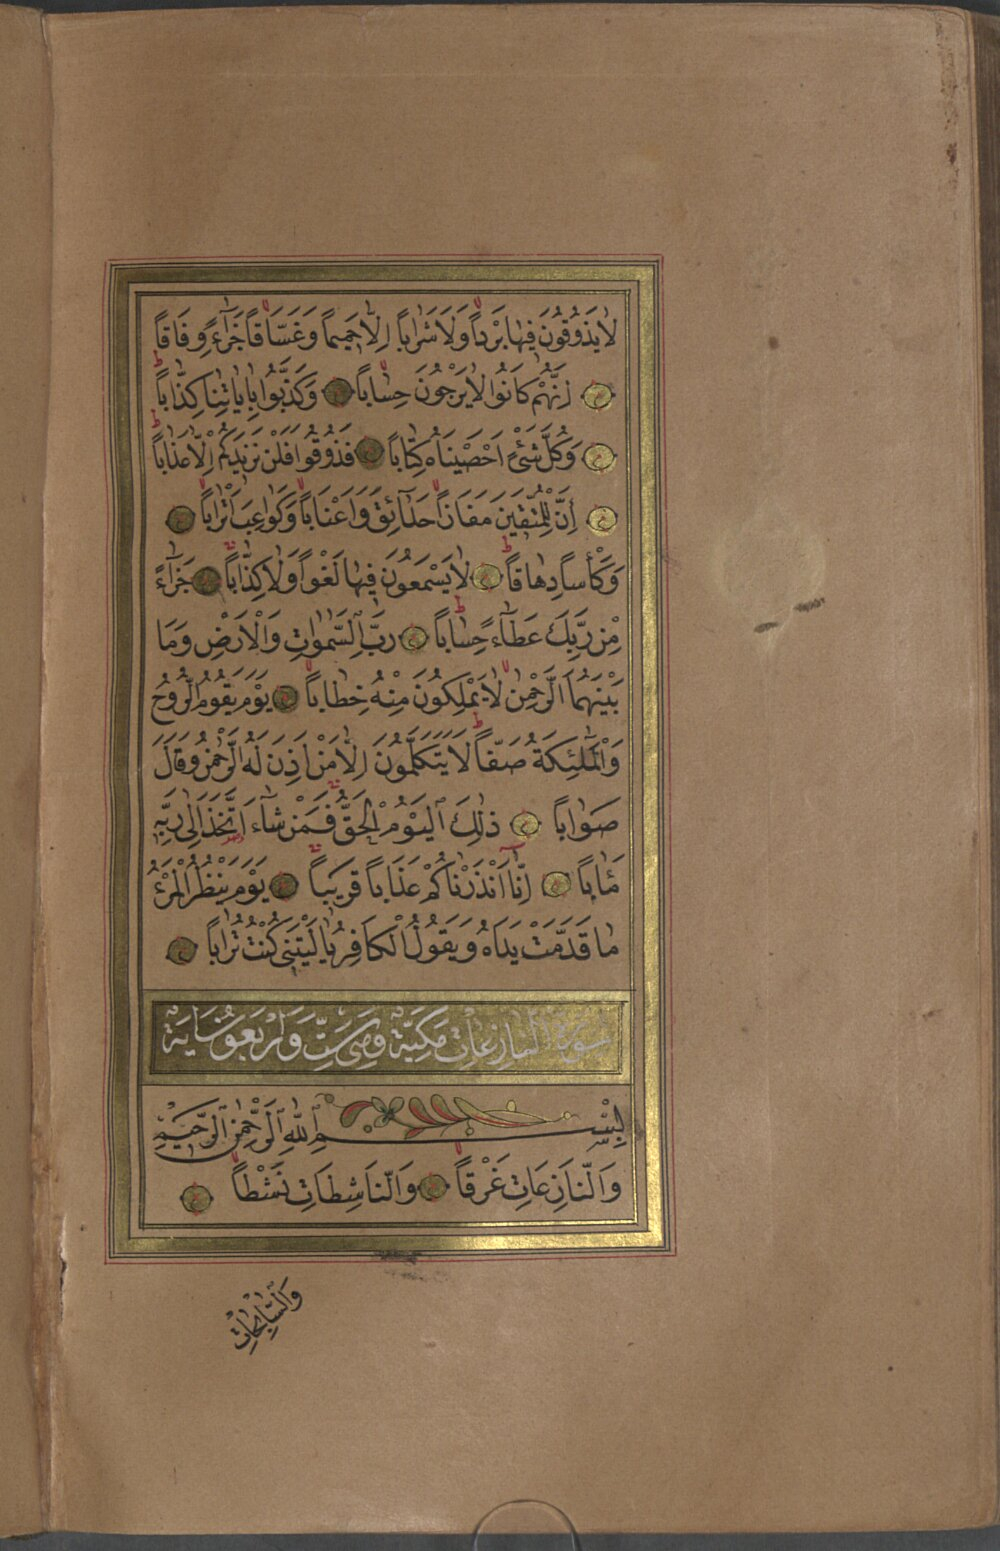 لَا يَذُوقُونَ فِيهَا بَرْداً وَلَا شَرَاباً اِلَّا حَمِيماً وَغَسَّاقاً جَزَآءً وِفَاقاً
اِنَّهُمْ كَانُوا لَا يَرْجُونَ حِسَاباً وَكَذَّبُوا بِاٰيَاتِنَا كِذَّاباً
وَكُلَّ شَيْءٍ اَحْصَيْنَاهُ كِتَاباً فَذُوقُوا فَلَنْ نَزِيدَكُمْ اِلَّا عَذَاباً
اِنَّ لِلْمُتَّقِينَ مَفَازاً حَدَآئِقَ وَاَعْنَاباً وَكَوَاعِبَ اَتْرَاباً
وَكَأْساً دِهَاقاً لَا يَسْمَعُونَ فِيهَا لَغْواً وَلَا كِذَّاباً جَزَآءً
مِنْ رَبِّكَ عَطَآءً حِسَاباً رَبِّ السَّمٰوَاتِ وَالْاَرْضِ وَمَا
بَيْنَهُمَا الرَّحْمٰنِ لَا يَمْلِكُونَ مِنْهُ خِطَاباً يَوْمَ يَقُومُ الرُّوحُ
وَالْمَلٰٓئِكَةُ صَفّاً لَا يَتَكَلَّمُونَ اِلَّا مَنْ اَذِنَ لَهُ الرَّحْمٰنُ وَقَالَ
صَوَاباً ذٰلِكَ الْيَوْمُ الْحَقُّ فَمَنْ شَآءَ اتَّخَذَ اِلٰى رَبِّهِ
مَاٰباً اِنَّٓا اَنْذَرْنَاكُمْ عَذَاباً قَرِيباً يَوْمَ يَنْظُرُ الْمَرْءُ
مَا قَدَّمَتْ يَدَاهُ وَيَقُولُ الْكَافِرُ يَا لَيْتَنِي كُنْتُ تُرَاباً
سُورَةُ النَّازِعَاتِ مَكِّيَّةٌ وَهِيَ سِتٌّ وَاَرْبَعُونَ اٰيَةً
بِسْمِ اللّٰهِ الرَّحْمٰنِ الرَّحِيمِ
وَالنَّازِعَاتِ غَرْقاً وَالنَّاشِطَاتِ نَشْطاً
وَالسَّابِحَاتِ